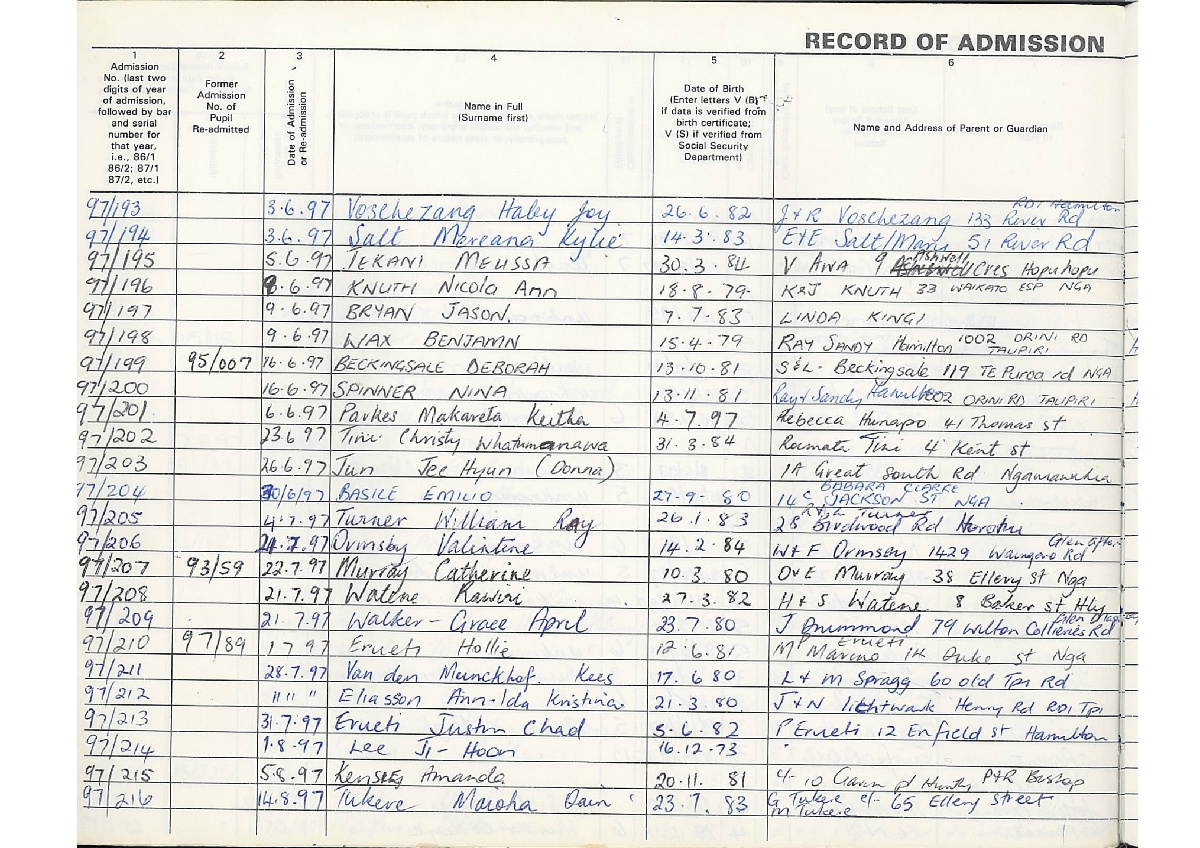 RECORD OF ADMISSION
1 2 3 4 5 6
Admission No. (last two digits of year of admission, followed by bar and serial number for that year, i.e., 86/1 86/2; 87/1 87/2, etc.)
Former Admission No. of Pupil Re-admitted
Date of Admission or Re-admission
Name in Full (Surname first)
Date of Birth (Enter letters V (B) if data is verified from birth certificate; V (S) if verified from Social Security Department)
Name and Address of Parent or Guardian
97/193 3.6.97 Voschezang Haley Joy 26.6.82 J & R Voschezang 133 River Rd RD1 Hamilton
97/194 3.6.97 Salt Mereana Kylie 14.3.83 E & E Salt/ 51 River Rd
97/195 5.6.97 TEKANI MELISSA 30.3.84 V AWA 9 Ashwell Cres Hopuhopu
97/196 9.6.97 KNUTH Nicola Ann 18.8.79 K&J KNUTH 33 WAIKATO ESP NGA
97/197 9.6.97 BRYAN JASON. 7.7.83 LINDA KINGI
97/198 9.6.97 WAX BENJAMN 15.4.79 RAY SANDY Hamilton 1002 ORINI RD TAUPIRI
97/199 95/007 16.6.97 BECKINGSALE DEBORAH 13.10.81 S&L. Beckingsale 119 TE Puroa rd NGA
97/200 16.6.97 SPINNER NINA 13.11.81 Ray & Sandy Hamilton 1002 ORINI RD TAUPIRI
97/201 6.6.97 Parkes Makareta Keitha 4.7.97 Rebecca Hunapo 41 Thomas st
97/202 23.6.97 Tini Christy Whatumanawa 31.3.84 Ramata Tini 4 Kent st
97/203 26.6.97 Jun Jee Hyun (Donna) 1A Great South Rd Ngaruawahia
97/204 30/6/97 BASILE EMILIO 27-9-80 BABARA CLARKE 14 JACKSON ST NGA
97/205 4.7.97 Turner William Ray 26.1.83 Turner 28 Birdwood Rd Horotiu
97/206 21.7.97 Ormsby Valintine 14.2.84 W & F Ormsby 1429 Waingaro Rd Glen Afton
97/207 93/59 22.7.97 Murray Catherine 10.3.80 O & E Murray 38 Ellery st Nga
97/208 21.7.97 Watene Rawiri 27.3.82 H & S Watene 8 Baker st Hly
97/209 21.7.97 Walker-Grace April 23.7.80 J Drummond 79 Wilton Collieries Rd Glen
97/210 97/89 1 7 97 Erueti Hollie 12.6.81 Erueti Marino 14 Duke st Nga
97/211 28.7.97 Van den Munckhof. Kees 17.6 80 L & M Spragg 60 old Tpi Rd
97/212 " " " Eliasson Ann-Ida Kristina 21.3.80. J & N Lichtwark Henry Rd RD1 Tpi
97/213 31.7.97 Erueti Justin Chad 5.6.82 P Erueti 12 Enfield st Hamilton
97/214 1.8.97 Lee Ji-Hoon 16.12.73
97/215 5.8.97 Amanda 20.11.81 4-10 Huntly P&R Bishop
97/216 14.8.97 Tukere Maioha Dain 23.7.83 G Tukere c/- 65 Ellery Street
M Tukere